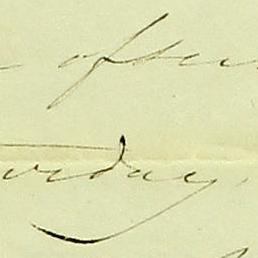 often
urday,